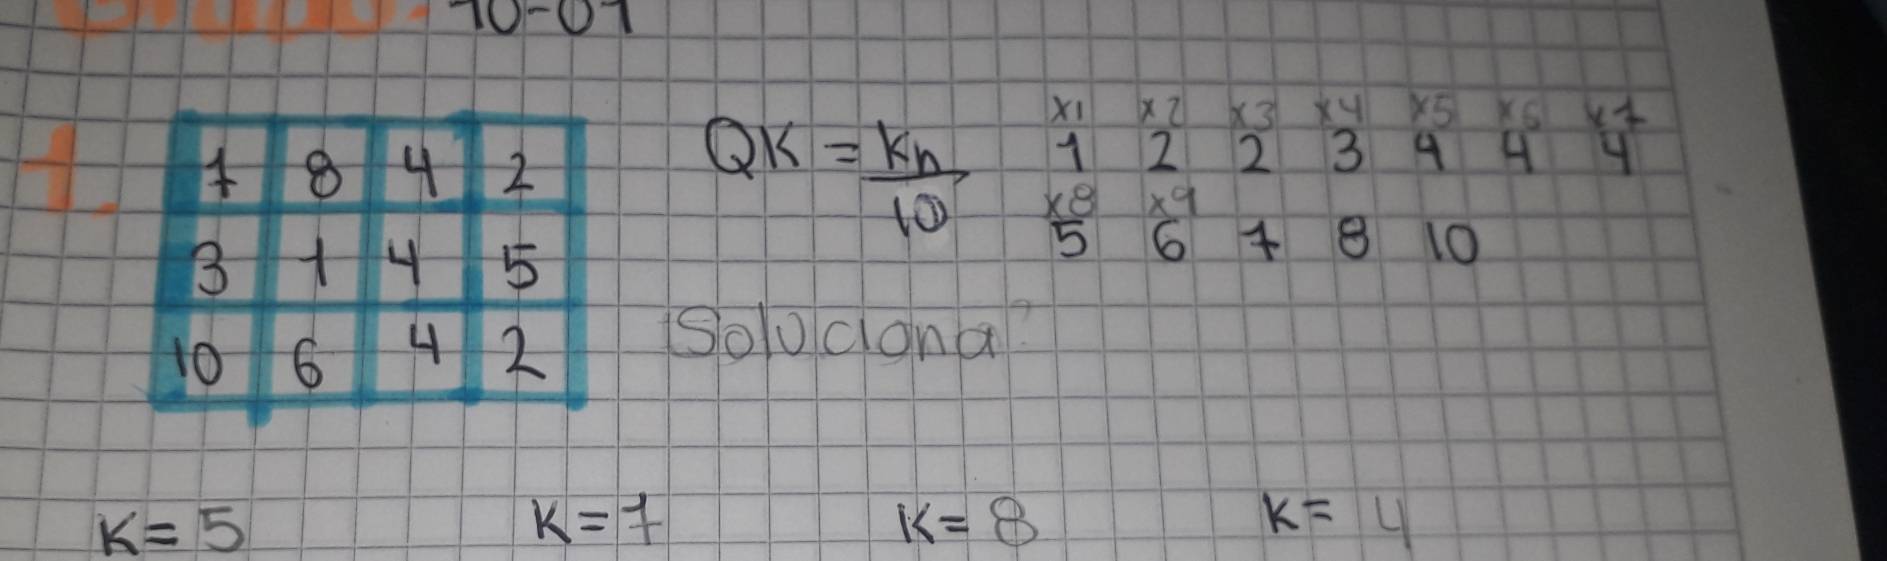 10-01
1.
7 8 4 2
3 1 4 5
10 6 4 2
QK = Kn
10
x1 x2 x3 x4 x5 x6 x7
1 2 2 3 4 4 4
x8 x9
5 6 7 8 10
Soluciona
K= 5 K=7 K= 8 K= 4